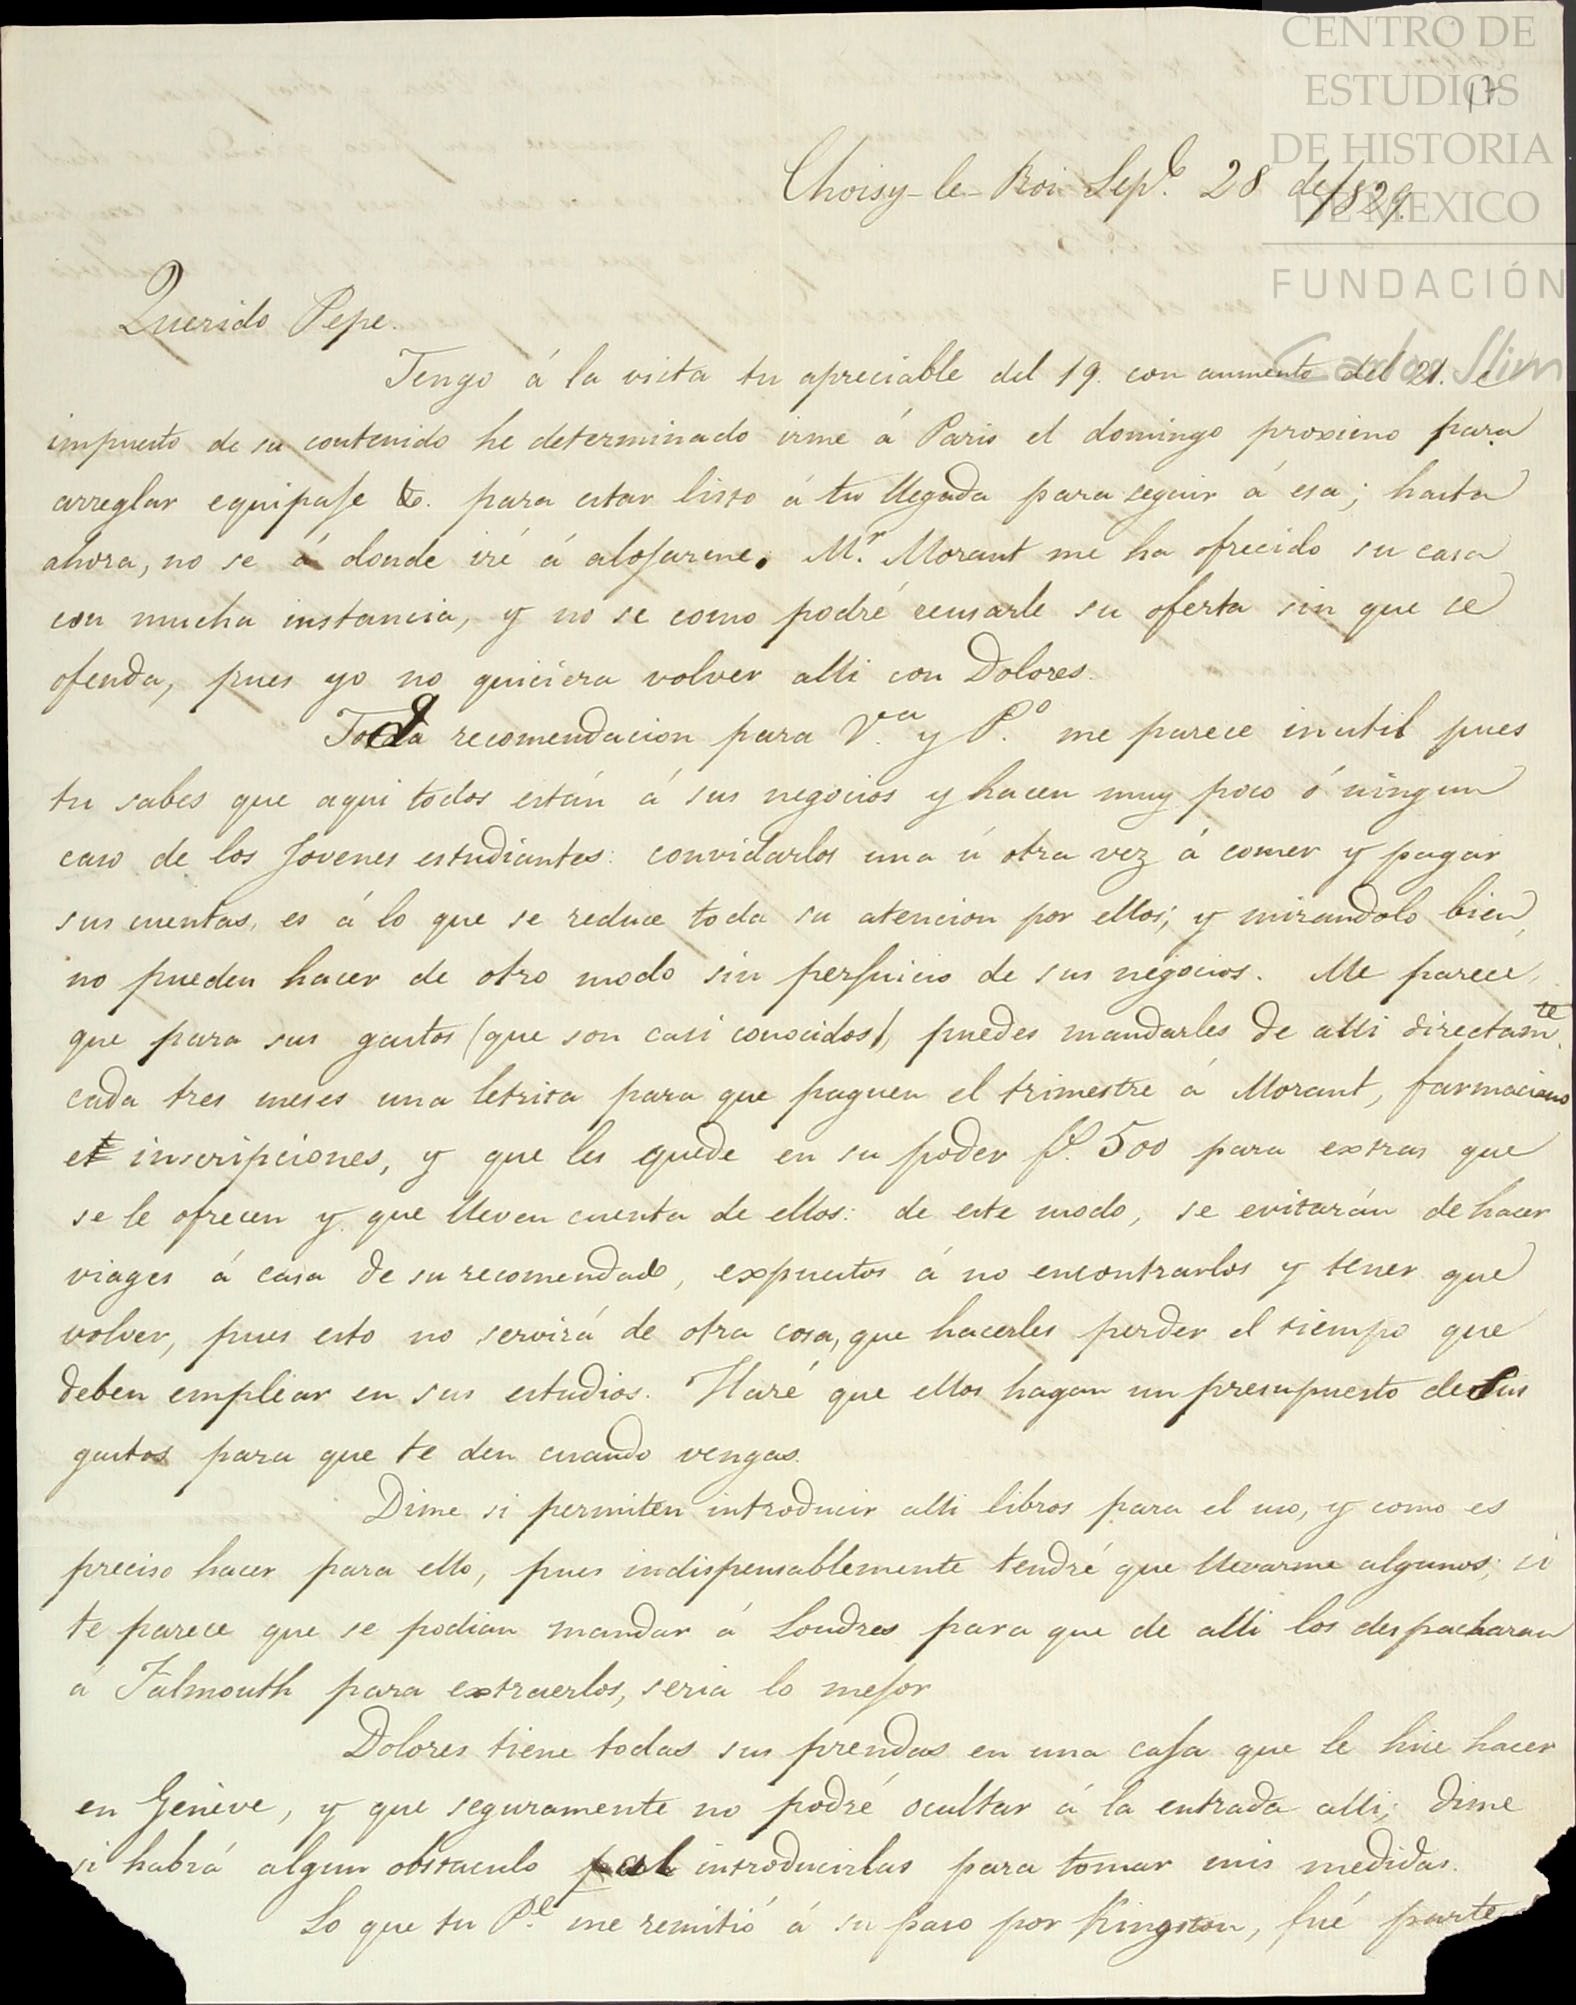 CENTRO DE
ESTUDIOS
DE HISTORIA
DE MEXICO
FUNDACIÓN
Carlos Slim
17
Choisy-le-Roi Sep.e 28 de 1829.
Querido Pepe.
Tengo á la vista tu apreciable del 19. con aumento del 21. e
impuesto de su contenido he determinado irme á Paris el domingo proximo para
arreglar equipaje &. para estar listo á tu llegada para seguir á esa; hasta
ahora, no se á donde iré á alojarme. M.r Morant me ha ofrecido su casa
con mucha instancia, y no se como podré reusarle su oferta sin que se
ofenda, pues yo no quiciera volver alli con Dolores.
Toda recomendacion para V.ca y P.o me parece inutil pues
tu sabes que aqui todos están á sus negocios y hacen muy poco ó ningun
caso de los Jovenes estudiantes: convidarlos una ú otra vez á comer y pagar
sus cuentas, es á lo que se reduce toda su atencion por ellos; y mirandolo bien,
no pueden hacer de otro modo sin perjuicio de sus negocios. Me parece,
que para sus gastos (que son casi conocidos), puedes mandarles de alli directam.te
cada tres meses una letrita para que paguen el trimestre á Morant, farmaciano
et inscripciones, y que les quede en su poder f. 500 para extras que
se le ofrecen y que lleven cuenta de ellos: de este modo, se evitarán de hacer
viages á casa de su recomendado, expuestos á no encontrarlos y tener que
volver, pues esto no servirá de otra cosa, que hacerles perder el tiempo que
deben emplear en sus estudios. Haré que ellos hagan un presupuesto de sus
gastos para que te den cuando vengas.
Dime si permiten introducir alli libros para el uso, y como es
preciso hacer para ello, pues indispensablemente tendré que llevarme algunos; si
te parece que se podian mandar á Londres para que de alli los despacharan
á Falmouth para extraerlos, seria lo mejor
Dolores tiene todas sus prendas en una caja que le hice hacer
en Genève, y que seguramente no podré ocultar á la entrada alli; dime
si habrá algun obstaculo introducirlas para tomar mis medidas.
Lo que tu P.e me remitió á su paso por Kingston, fué parte